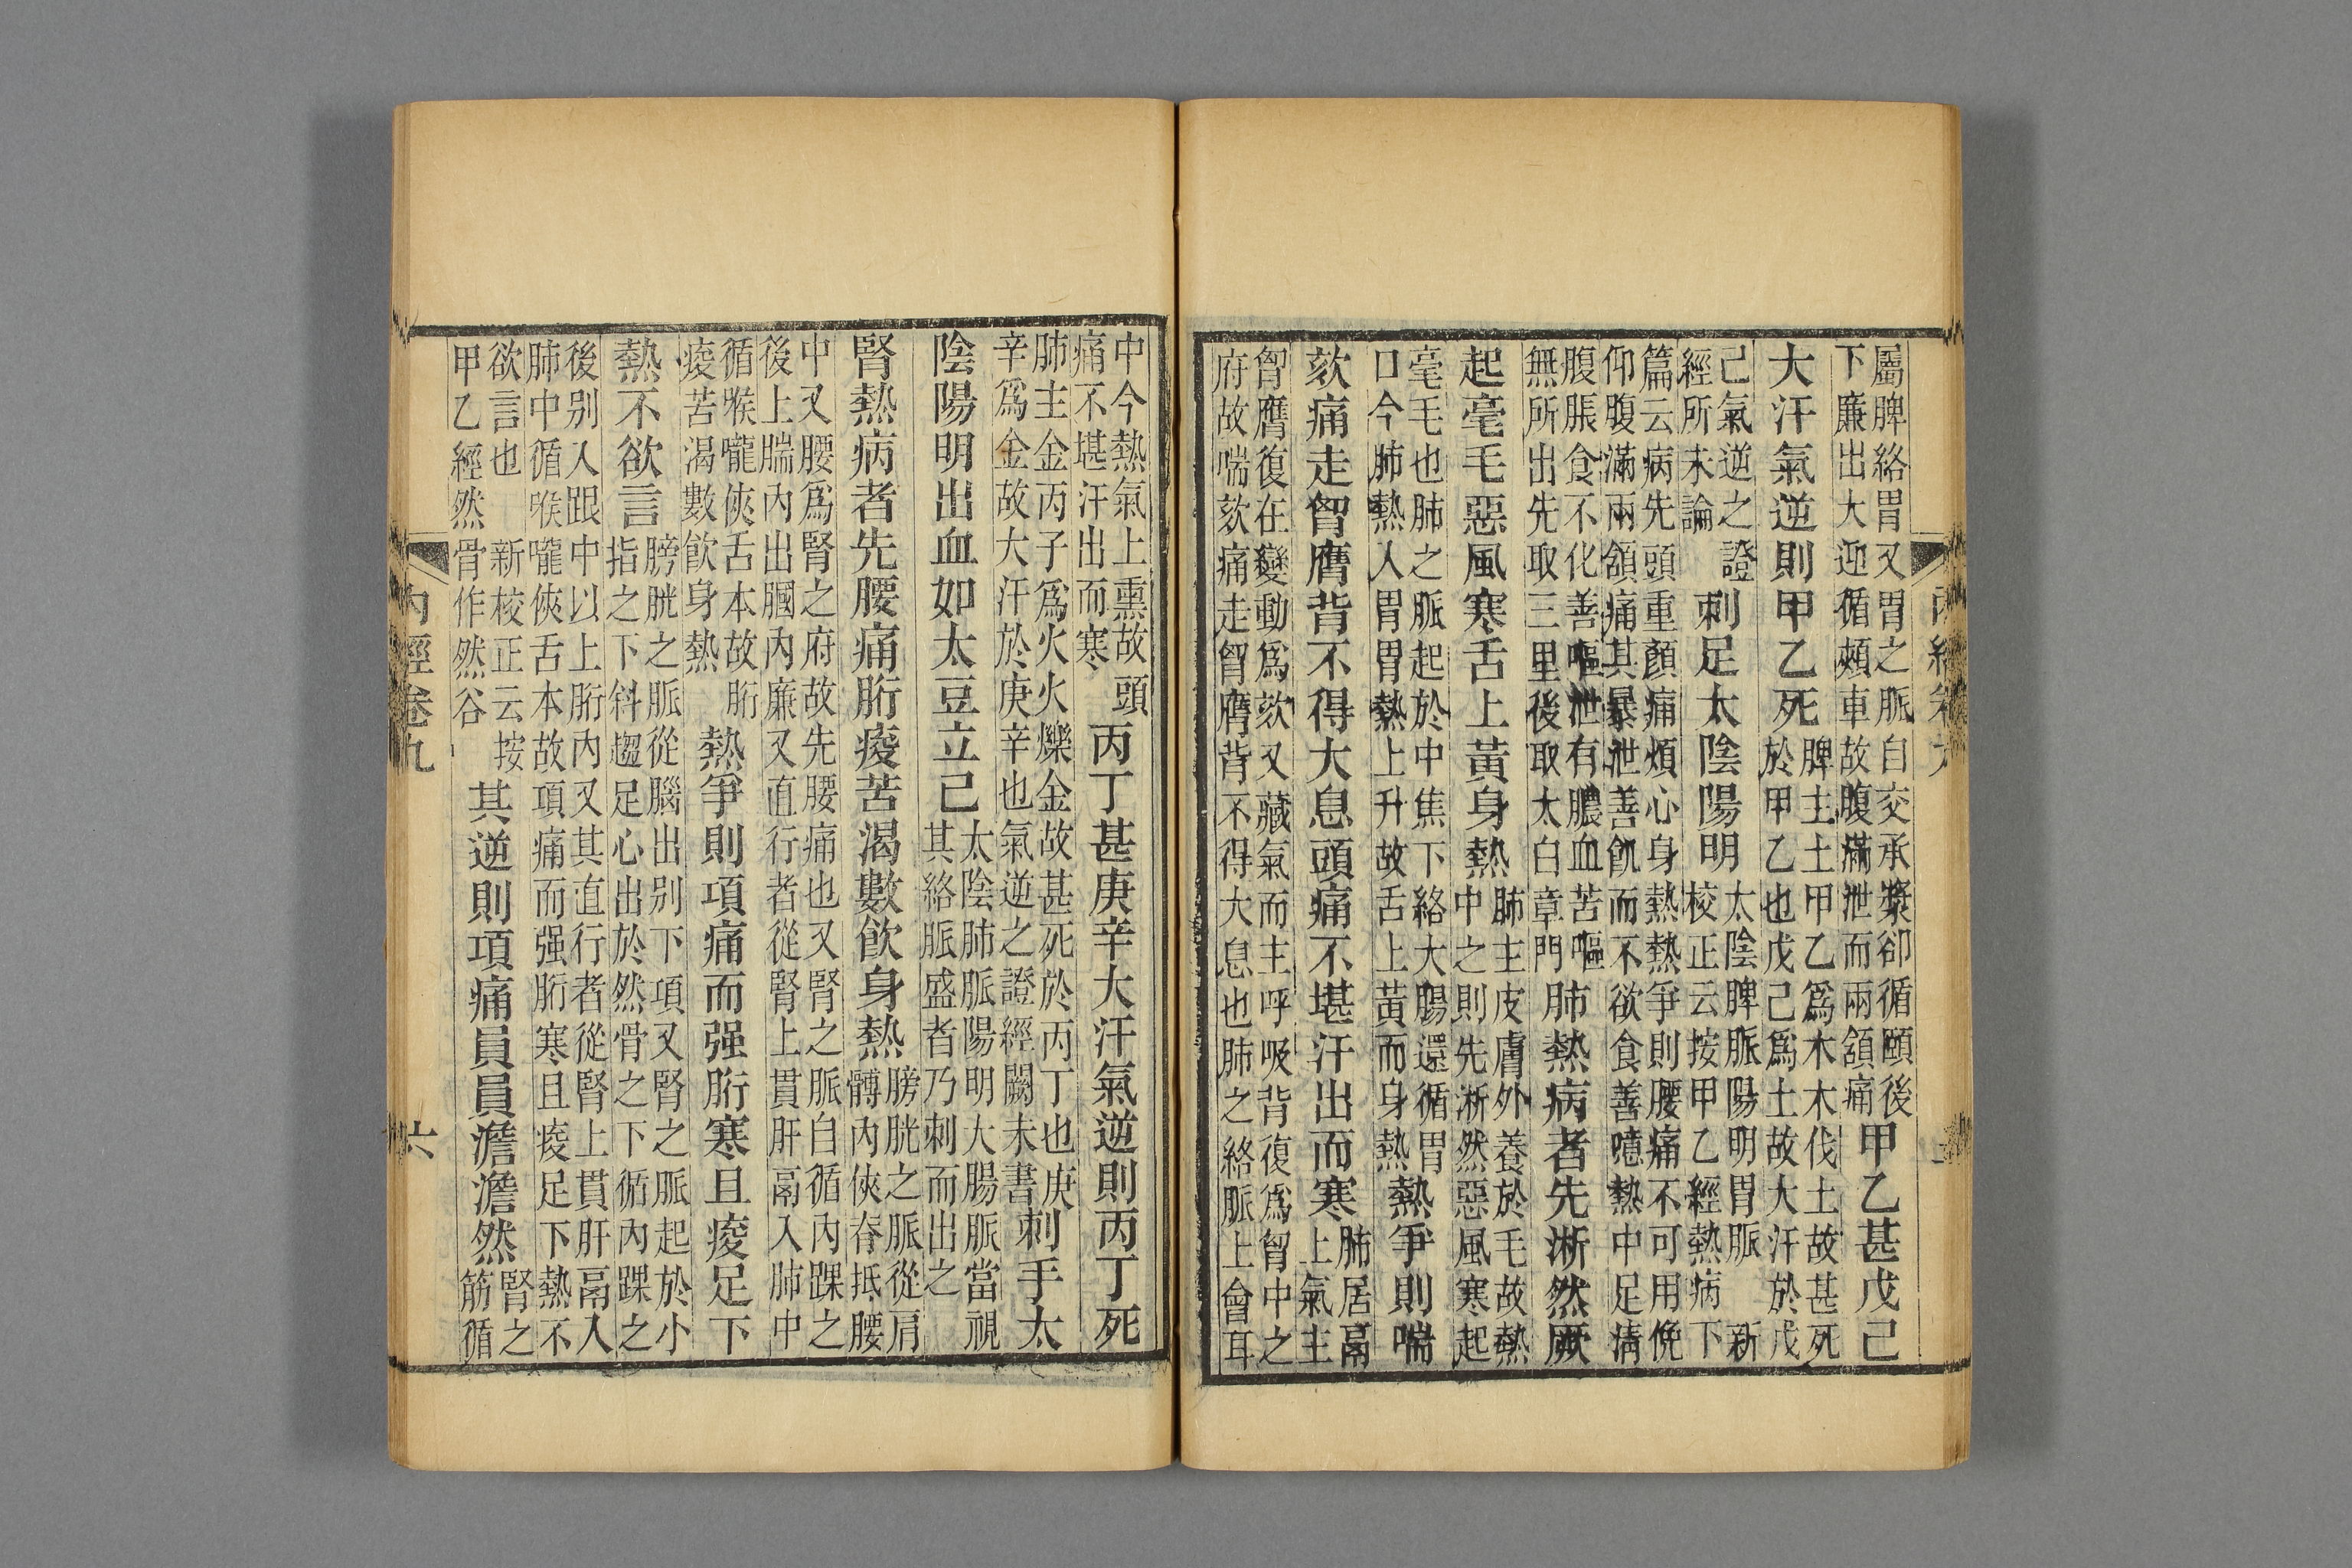 屬脾絡胃又胃之脈自交承漿卻循頤後下廉出大迎循頰車故腹滿泄而兩頷痛甲乙甚戊己
大汗氣逆則甲乙死脾主土甲乙爲木木伐土故甚死於甲乙也戊己爲土故大汗於戊
己氣逆之證經所未論刺足太陰陽明太陰脾脈陽明胃脈 新校正云按甲乙經熱病下
篇云病先頭重顏痛煩心身熱熱爭則腰痛不可用俛仰腹滿兩頷痛其暴泄善飢而不欲食善噫熱中足清
腹脹食不化善嘔泄有膿血苦嘔無所出先取三里後取太白章門肺熱病者先淅然厥
起毫毛惡風寒舌上黃身熱肺主皮膚外養於毛故熱中之則先淅然惡風寒起
毫毛也肺之脈起於中焦下絡大腸還循胃口今肺熱入胃胃熱上升故舌上黃而身熱熱爭則喘
欬痛走胷膺背不得大息頭痛不堪汗出而寒肺居鬲上氣主
胷膺復在變動爲欬又藏氣而主呼吸背復爲胷中之府故喘欬痛走胷膺背不得大息也肺之絡脈上會耳
中今熱氣上熏故頭痛不堪汗出而寒丙丁甚庚辛大汗氣逆則丙丁死
肺主金丙子爲火火爍金故甚死於丙丁也庚辛爲金故大汗於庚辛也氣逆之證經闕未書刺手太
陰陽明出血如大豆立已太陰肺脈陽明大腸脈當視其絡脈盛者乃刺而出之
腎熱病者先腰痛胻痠苦渴數飲身熱膀胱之脈從肩髆內俠脊抵腰
中又腰爲腎之府故先腰痛也又腎之脈自循內踝之後上腨內出膕內廉又直行者從腎上貫肝鬲入肺中
循喉嚨俠舌本故胻痠苦渴數飲身熱熱爭則項痛而强胻寒且痠足下
熱不欲言膀胱之脈從腦出別下項又腎之脈起於小指之下斜趨足心出於然骨之下循內踝之
後別入跟中以上胻內又其直行者從腎上貫肝鬲入肺中循喉嚨俠舌本故項痛而强胻寒且痠足下熱不
欲言也 新校正云按甲乙經然骨作然谷其逆則項痛員員澹澹然腎之筋循
內經卷九
六